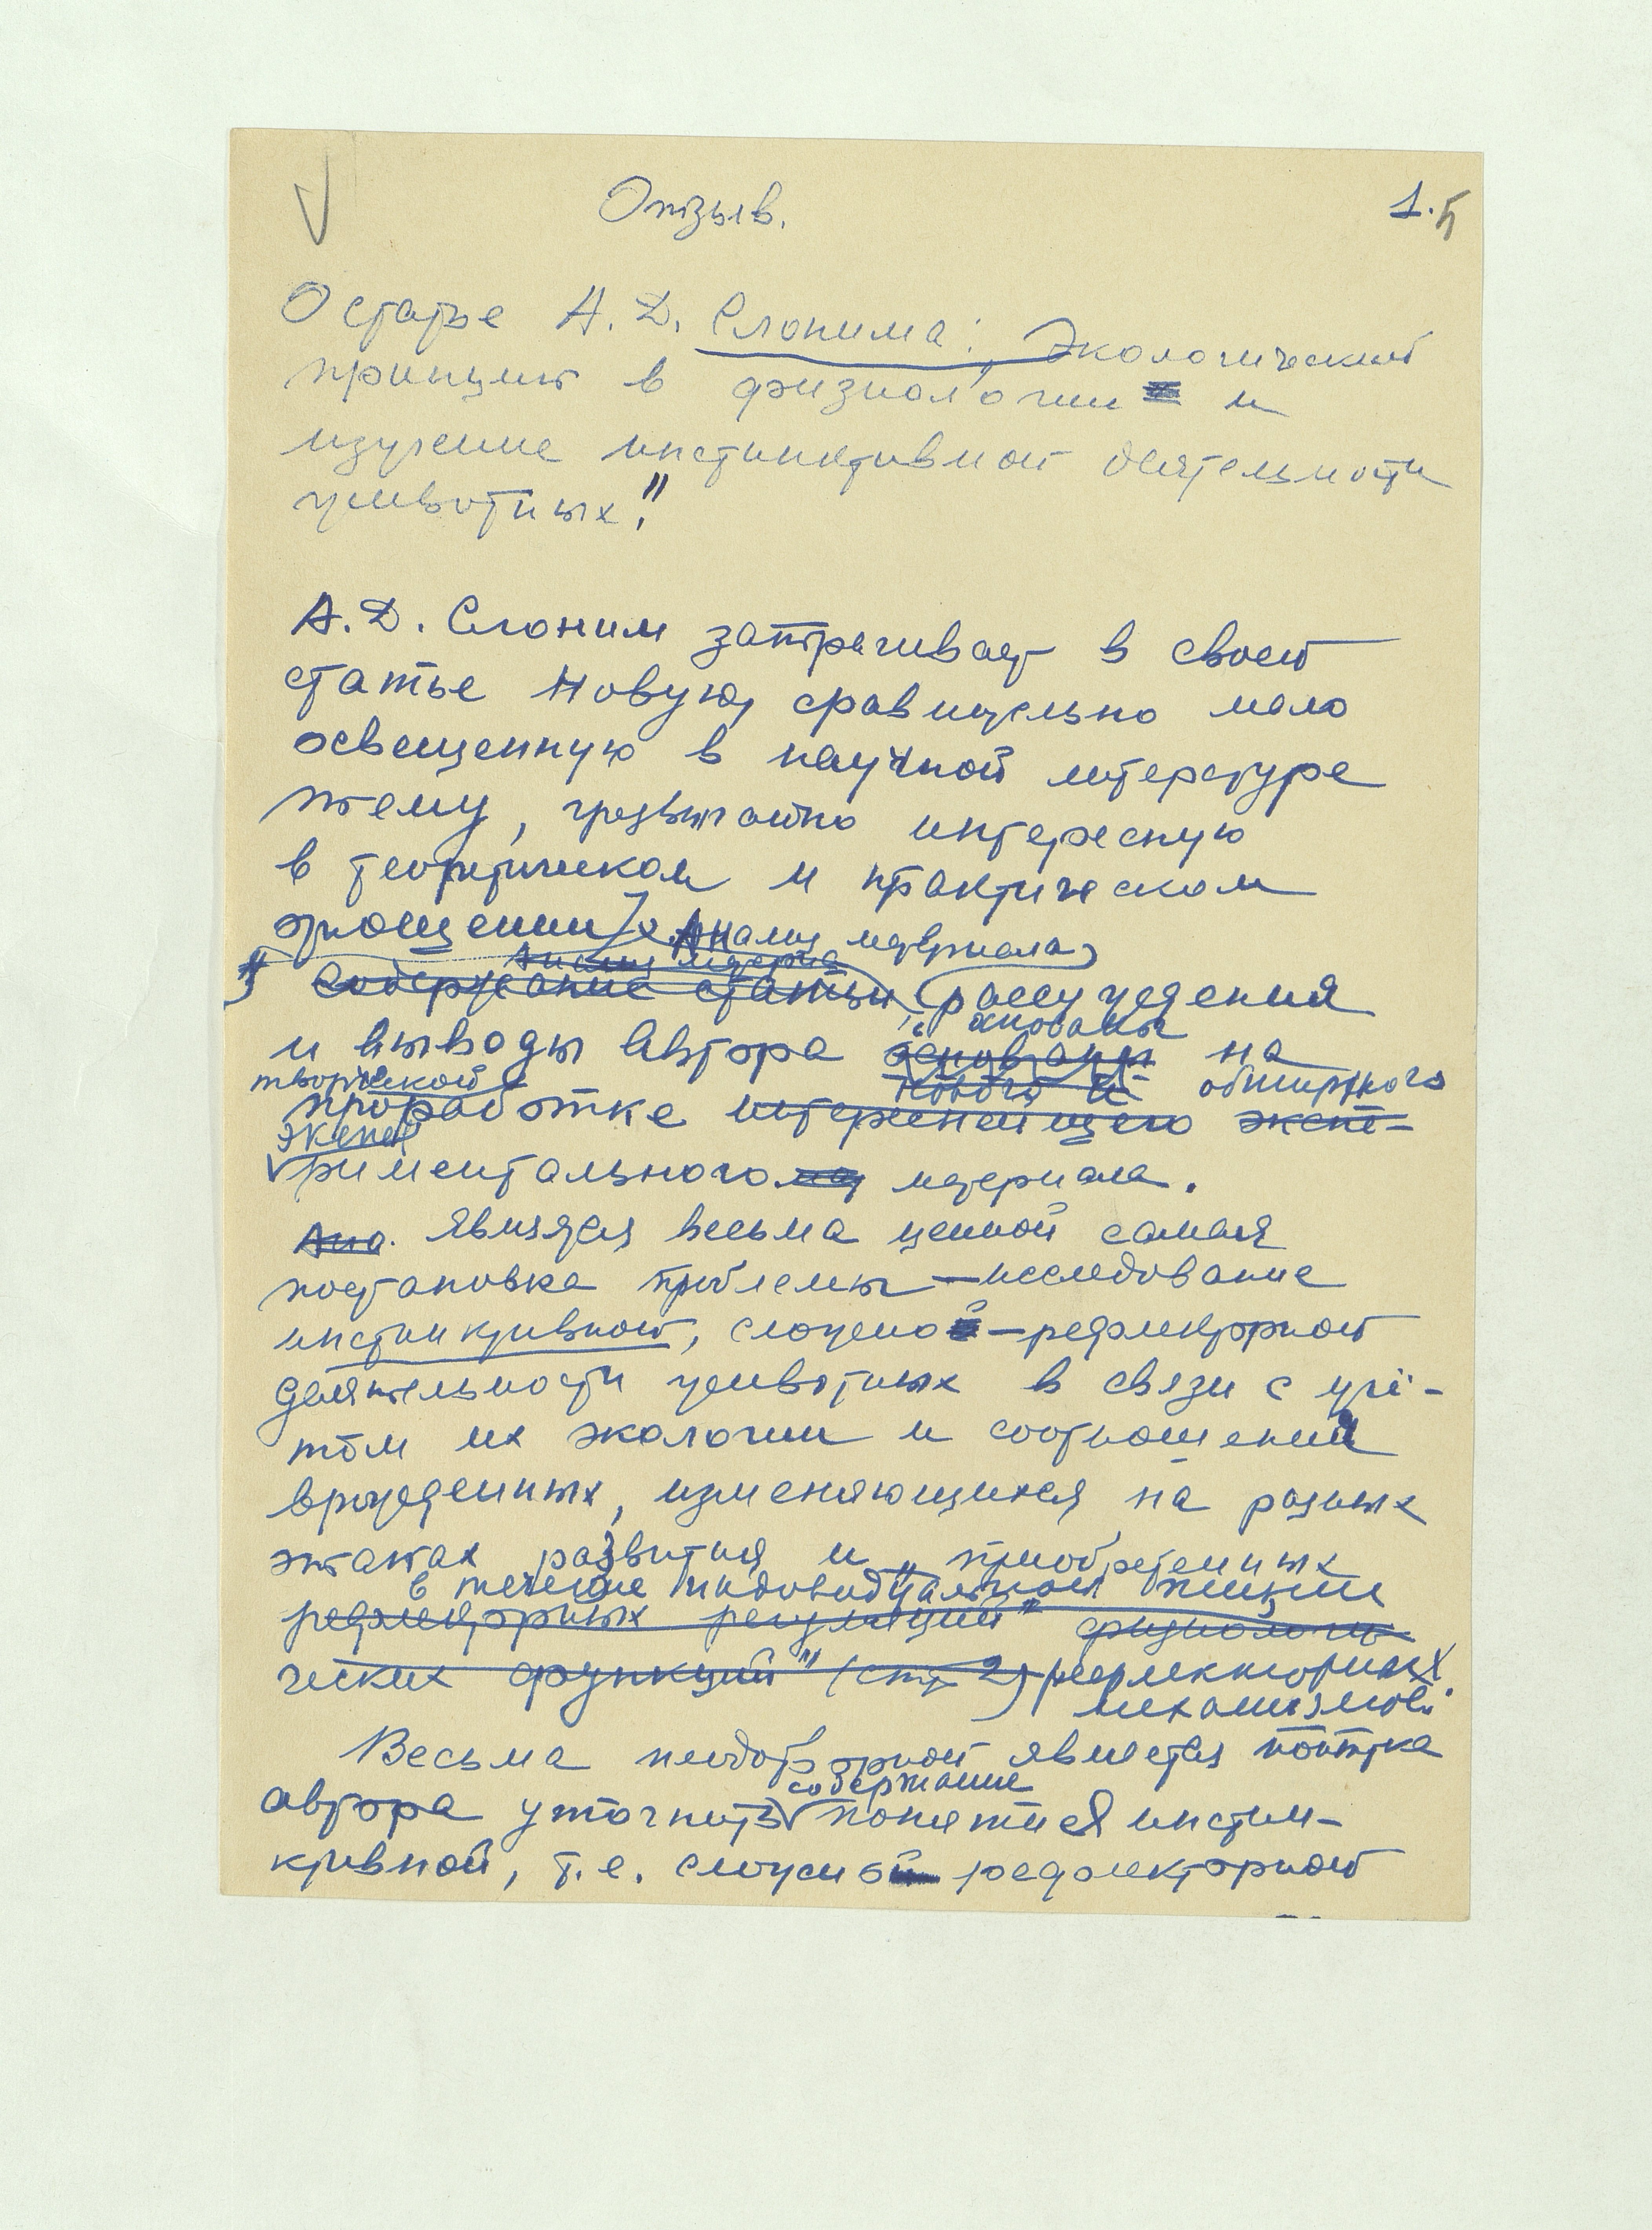 Отзыв.
1.
О статье А. Д. Слонима: „Экологический
принцип в физиологии и
изучение инстинктивной деятельности
животных."
А. Д. Слоним затрагивает в своей
статье новую, сравнительно мало
освещенную в научной литературе
тему, чрезвычайно интересную
в теоритическом и практическом
отношении
Анализ материала,
Анализ материа
содержание статьи, рассуждения
основаны
и выводы автора основаны на
творческой нового и обширного
проработке интереснейшего экспе-
экспе
риментального материала.
Является весьма ценной самая
постановка проблемы — исследование
инстинктивной, сложно-рефлекторной
деятельности животных в связи с учё-
том их экологии и соотношений
врожденных, изменяющихся на разных
этапах развития и „приобретенных
в течение индивидуальной жизни
рефлекторных регуляций" физиологи-
ческих функций" (стр 2) рефлекторных
механизмов.
Весьма плодотворной является попытка
содержание
автора уточнить понятия инстин-
ктивной, т.е. сложно рефлекторной